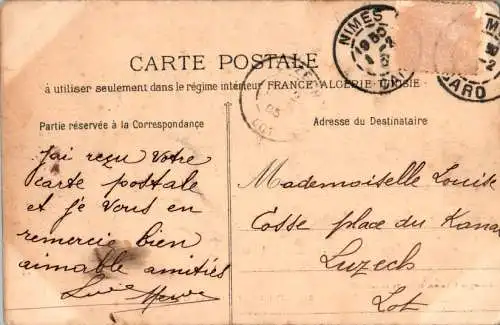 CARTE POSTALE
à utiliser seulement dans le régime intérieur FRANCE-ALGERIE-TUNISIE
Partie réservée à la Correspondance
J'ai reçu votre
carte postale
et je vous en
remercie bien
aimable amitiés
Adresse du Destinataire
Mademoiselle Louise
Cosse place du Kana
Luzech
Lot
NIMES
GARD
LOT